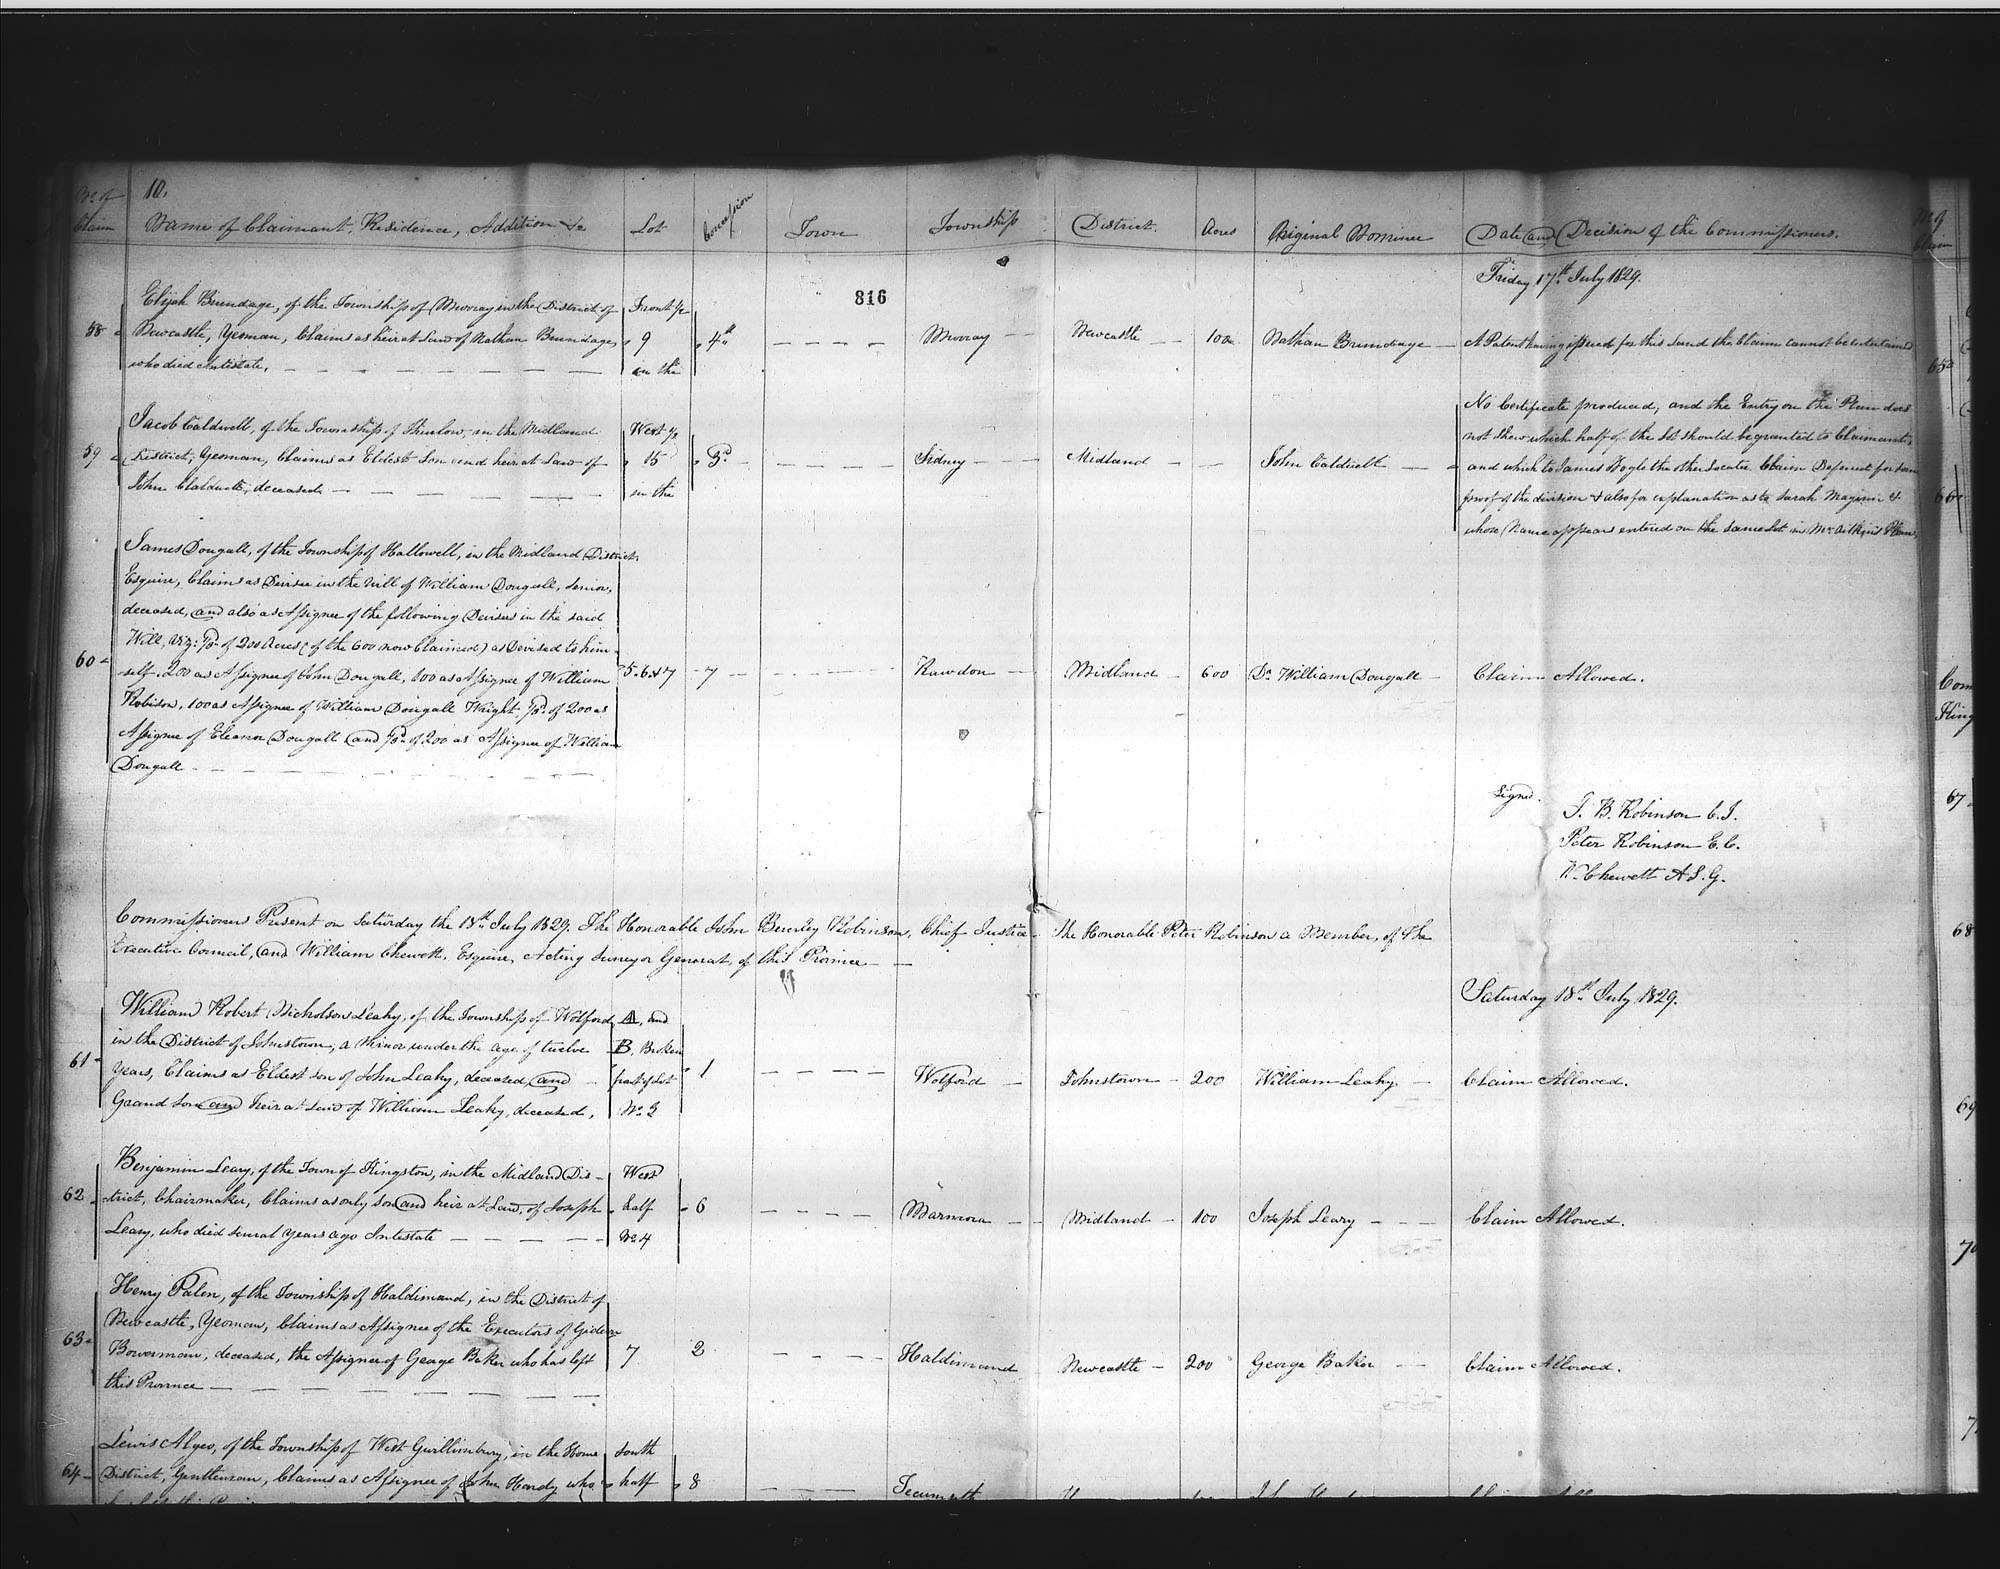 No. of
Claim
10.
Name of Claimant, Residence, Addition &c
Lot
Concession
Town
Township
District.
Acres
Original Nominee
Date and Decision of the Commissioners.
No of
Claim
Friday 17th July 1829.
816
58
Elijah Brundage, of the Township of Murray in the District of
Newcastle, Yeoman, Claims as heir at Law of Nathan Brundage,
who died Intestate.
Front ½
9
in the
4th
Murray
Newcastle
100
Nathan Brundage
A Patent having issued for this Land the Claim cannot be entertained
59
Jacob Caldwell, of the Township of Thurlow, in the Midland
District, Yeoman, Claims as Eldest Son and heir at Law of
John Caldwell, deceased
West ½
15
in the
3d
Sidney
Midland
John Caldwell
No Certificate produced, and the Entry on the Plan does
not shew which half of the Lot should be granted to Claimant,
and which to James the other Locatee Claim Deferred for
proof of the division & also for explanation as to Sarah &
whose Name appears entered on the same Lot in Mr. Aitkins Plan.
60
James Dougall, of the Township of Hallowell, in the Midland District
Esquire, Claims as Devisee in the Will of William Dougall, Senior,
deceased, and also as Assignee of the following Devisees in the said
Will, viz: of 200 Acres (of the 600 now Claimed) as Devised to him-
self. 200 as Assignee of John Dougall, 100 as Assignee of William
Robison, 100 as Assignee of William Dougall Wright, of 200 as
Assignee of Eleanor Dougall and of 200 as Assignee of William
Dougall
5. 6. & 7
7
Rawdon
Midland
600
Dr. William Dougall
Claim Allowed.
Signed.
J. B. Robinson C. J.
Peter Robinson E. C.
W. Chewett A. S. G.
Commissioners Present on Saturday the 18th July 1829. The Honorable John Beverley Robinson, Chief Justice - The Honorable Peter Robinson a Member, of the
Executive Council, and William Chewett, Esquire, Acting Surveyor General, of this Province
Saturday 18th July 1829.
61
William Robert Nicholson Leahy, of the Township of Wolford
in the District of Johnstown, a Minor under the age of twelve
Years, Claims as Eldest son of John Leahy, deceased and
Grand Son and heir at Law of William Leahy, deceased,
A, and
B, Broken
part of Lot
No. 3
1
Wolford
Johnstown
200
William Leahy
Claim Allowed.
62
Benjamin Leary, of the Town of Kingston, in the Midland Dis-
trict, Chairmaker, Claims as only son and heir at Law, of Joseph
Leary, who died several Years ago Intestate
West
half
No. 4
6
Marmora
Midland
100
Joseph Leary
Claim Allowed.
63
Henry Palen, of the Township of Haldimand, in the District of
Newcastle, Yeoman, Claims as Assignee of the Executors of Gideon
Bowerman, deceased, the Assignee of George Baker who has left
this Province
7
2
Haldimand
Newcastle
200
George Baker
Claim Allowed.
64
Lewis Algeo, of the Township of West Gwillimbury, in the Home
District, Gentleman, Claims as Assignee of John Hardy who
South
half
8
Tecumseth
65
66
Com
King
67
68
69